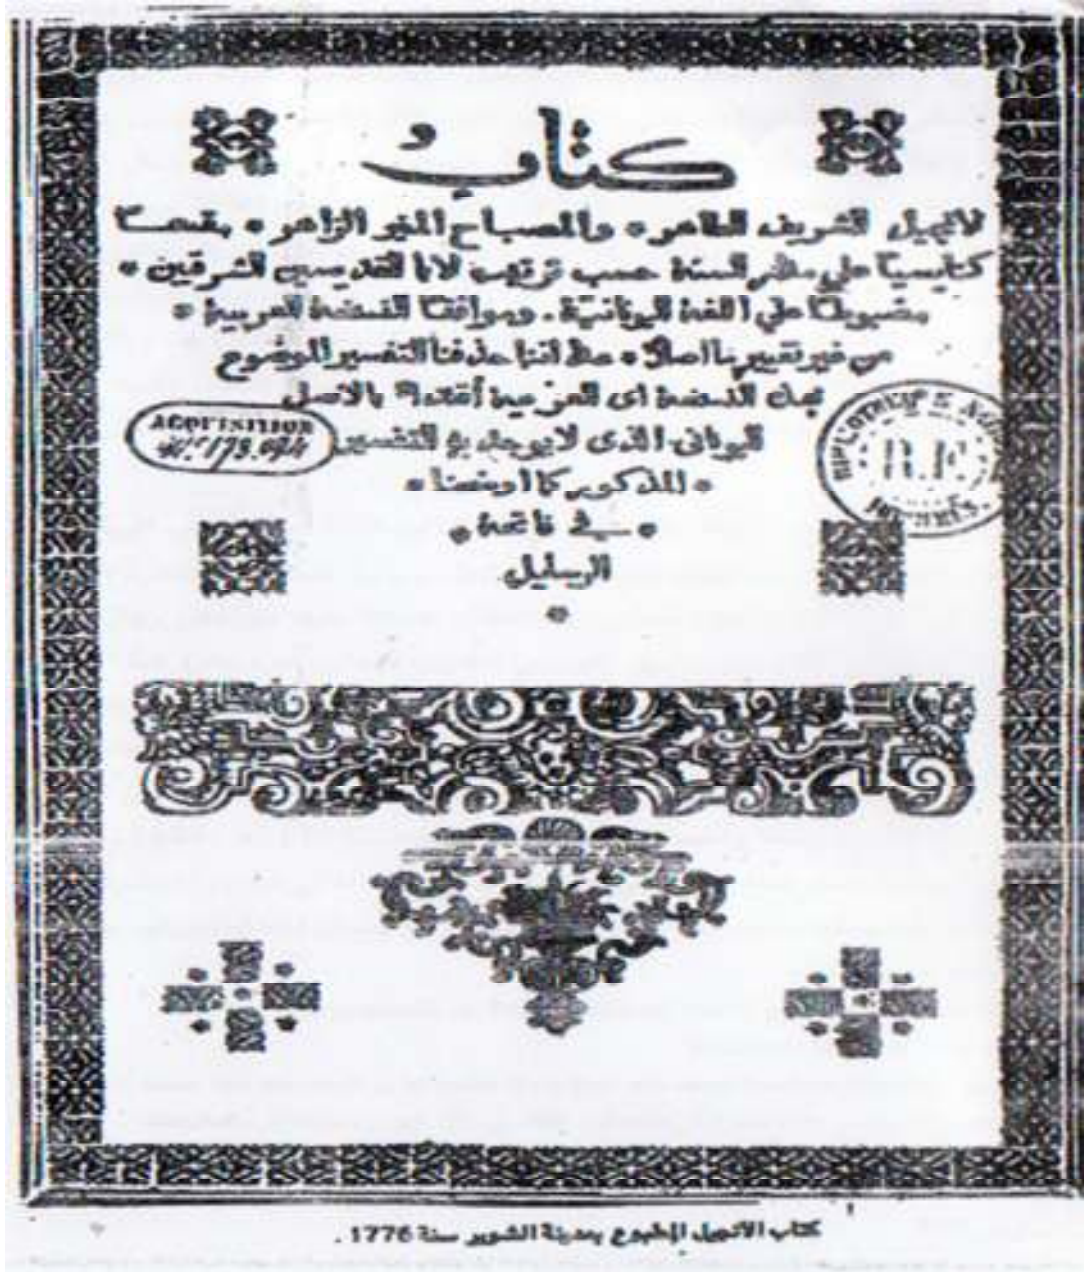 كتاب
لانجيل الشريف الطاهر * والمصباح المنير الزاهر * يقسم
كنايسيا علي مدار السنة حسب ترتيب لابا القديسين الشرقين *
مضبوطا علي اللغة اليونانية. وموافقا النسخة العربية *
من غير تغيير بها اصلا * عدا اننا حذفنا التفسير الموضوع
بهك النسخة اى العربية أقتدا بالاصل
اليونانى الذى لايوجد به التفسير
* المذكور كما اوضحنا *
* في خاتمة *
الرسايل
*
ACQUISITION
178.
كتاب الانجيل المطبوع بمدينة الشوير سنة 1776 .